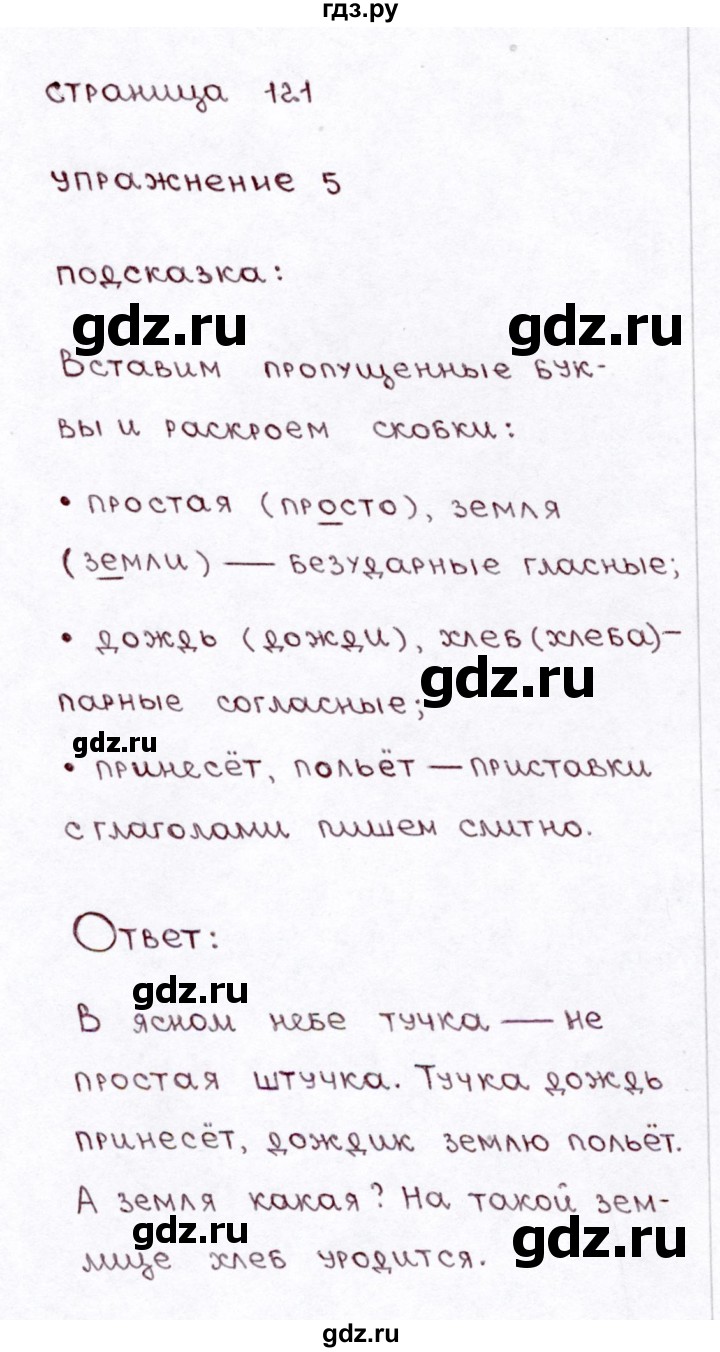 гдз.ру
страница 121
упражнение 5
подсказка:
gdz.ru gdz.ru
Вставим пропущенные бук-
вы и раскроем скобки:
• простая (просто), земля
(земли) — безударные гласные;
• дождь (дожди), хлеб (хлеба) –
gdz.ru
парные согласные;
gdz.ru
• принесёт, польёт — приставки
с глаголами пишем слитно.
Ответ:
gdz.ru
В ясном небе тучка — не
простая штучка. Тучка дождь
принесёт, дождик землю польёт.
А земля какая? На такой зем-
gdz.ru gdz.ru
лице хлеб уродится.
gdz.ru